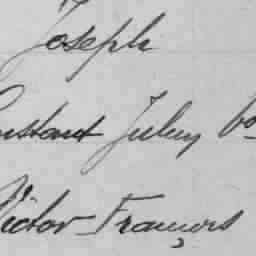 Joseph
Constant Juley
Victor François